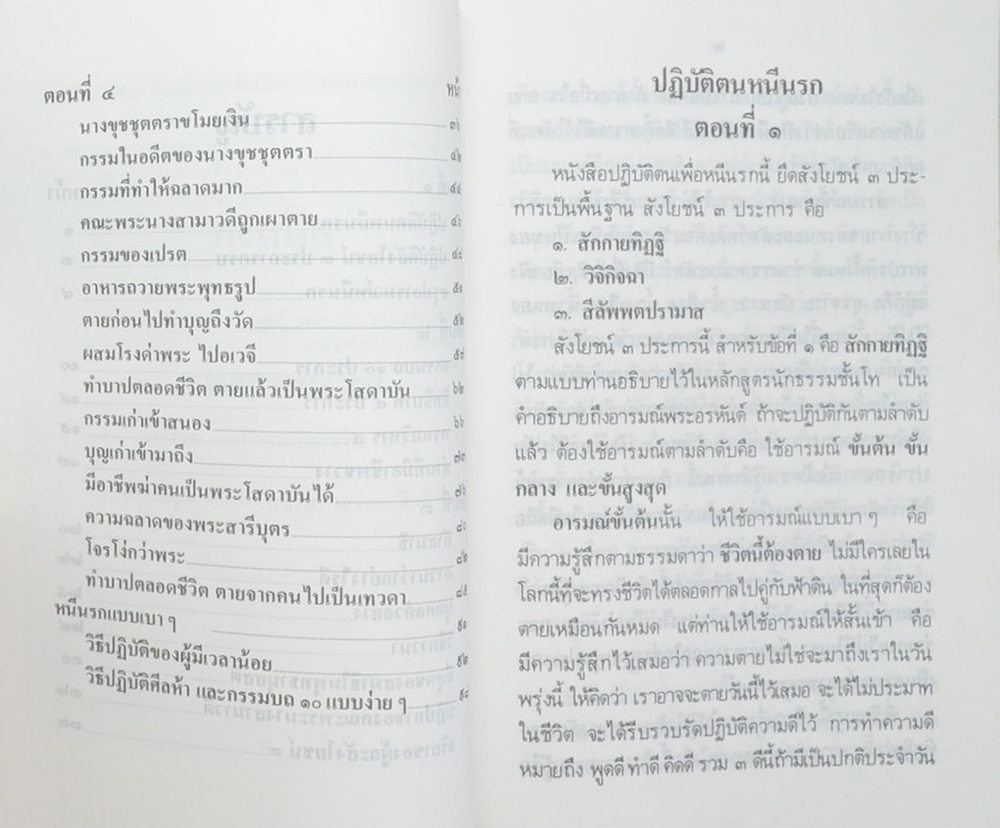 ตอนที่ ๔
นางขุชชุตตราขโมยเงิน
กรรมในอดีตของนางขุชชุตตรา
กรรมที่ทำให้ฉลาดมาก
คณะพระนางสามาวดีถูกเผาตาย
กรรมของเปรต
อาหารถวายพระพุทธรูป
ตายก่อนไปทำบุญถึงวัด
ผสมโรงด่าพระ ไปอเวจี
ทำบาปตลอดชีวิต ตายแล้วเป็นพระโสดาบัน ๖๒
กรรมเก่าเข้าสนอง ๖๖
บุญเก่าเข้ามาถึง ๗๓
มีอาชีพฆ่าคนเป็นพระโสดาบันได้ ๗๖
ความฉลาดของพระสารีบุตร ๘๐
โจรโง่กว่าพระ ๘๒
ทำบาปตลอดชีวิต ตายจากคนไปเป็นเทวดา ๘๕
หนีนรกแบบเบา ๆ ๙๐
วิธีปฏิบัติของผู้มีเวลาน้อย ๙๒
วิธีปฏิบัติศีลห้า และกรรมบถ ๑๐ แบบง่าย ๆ ๙๔
ปฏิบัติตนหนีนรก
ตอนที่ ๑
หนังสือปฏิบัติตนเพื่อหนีนรกนี้ ยึดสังโยชน์ ๓ ประ-
การเป็นพื้นฐาน สังโยชน์ ๓ ประการ คือ
๑. สักกายทิฏฐิ
๒. วิจิกิจฉา
๓. สีลัพพตปรามาส
สังโยชน์ ๓ ประการนี้ สำหรับข้อที่ ๑ คือ สักกายทิฏฐิ
ตามแบบท่านอธิบายไว้ในหลักสูตรนักธรรมชั้นโท เป็น
คำอธิบายถึงอารมณ์พระอรหันต์ ถ้าจะปฏิบัติกันตามลำดับ
แล้ว ต้องใช้อารมณ์ตามลำดับคือ ใช้อารมณ์ ขั้นต้น ขั้น
กลาง และขั้นสูงสุด
อารมณ์ขั้นต้นนั้น ให้ใช้อารมณ์แบบเบา ๆ คือ
มีความรู้สึกตามธรรมดาว่า ชีวิตนี้ต้องตาย ไม่มีใครเลยใน
โลกนี้ที่จะทรงชีวิตได้ตลอดกาลไปคู่กับฟ้าดิน ในที่สุดก็ต้อง
ตายเหมือนกันหมด แต่ท่านให้ใช้อารมณ์ให้สั้นเข้า คือ
มีความรู้สึกไว้เสมอว่า ความตายไม่ใช่จะมาถึงเราในวัน
พรุ่งนี้ ให้คิดว่า เราอาจจะตายวันนี้ไว้เสมอ จะได้ไม่ประมาท
ในชีวิต จะได้รีบรวบรัดปฏิบัติความดีไว้ การทำความดี
หมายถึง พูดดี ทำดี คิดดี รวม ๓ ดีนี้ถ้ามีเป็นปกติประจำวัน